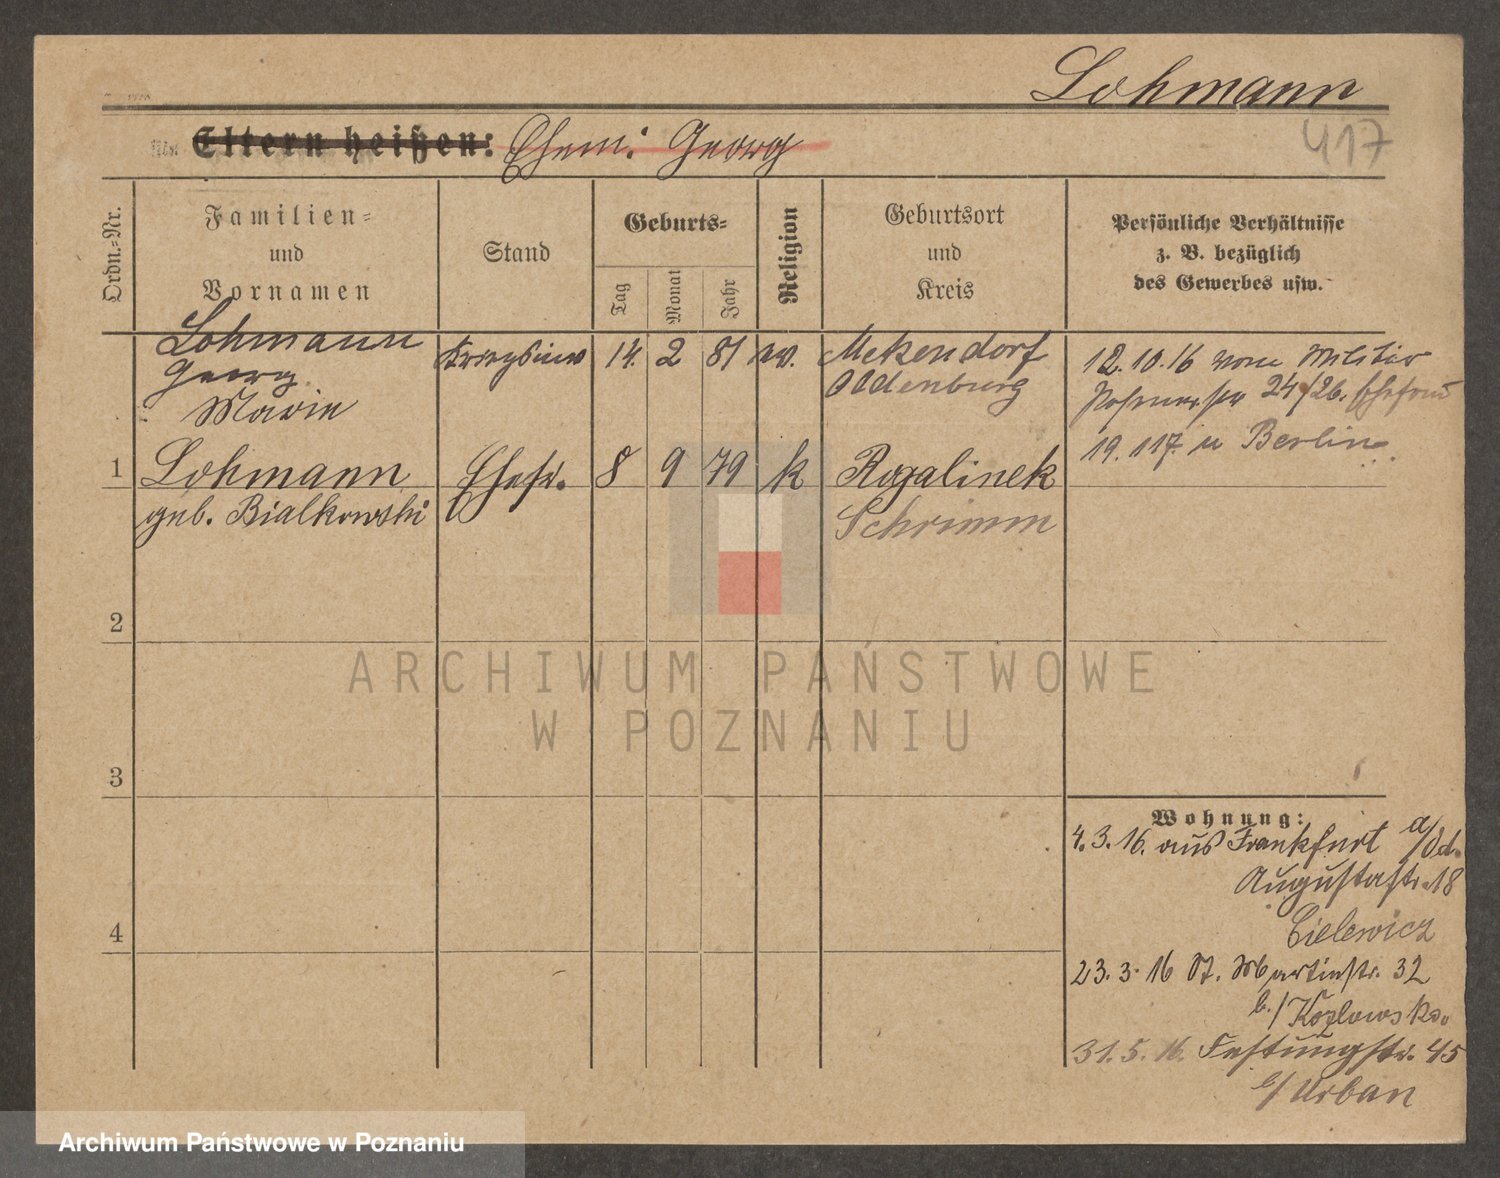 Lohmann
417
Eltern heißen: Ehem: Georg
Ordn.-Nr.
Familien-
und
Vornamen
Stand
Geburts-
Tag
Monat
Jahr
Religion
Geburtsort
und
Kreis
Persönliche Verhältnisse
z. B. bezüglich
des Gewerbes usw.
Lohmann 14. 2 81 ev.
Georg
Oldenburg
12.10.16 vom Militär
24/26. Ehefrau
Marie
19.1.17. n Berlin
1 Lohmann Ehefr. 8 9 79 k Rogalinek
geb. Bialkowski Schrimm
2
3
4
Wohnung:
4.3.16. aus Frankfurt a/Od.
Augustastr. 18
Cielewicz
23.3.16 St. Martinstr. 32
b./Kozlowska
31.5.16. Festungstr. 45
b/Urban
ARCHIWUM PAŃSTWOWE
W POZNANIU
Archiwum Państwowe w Poznaniu